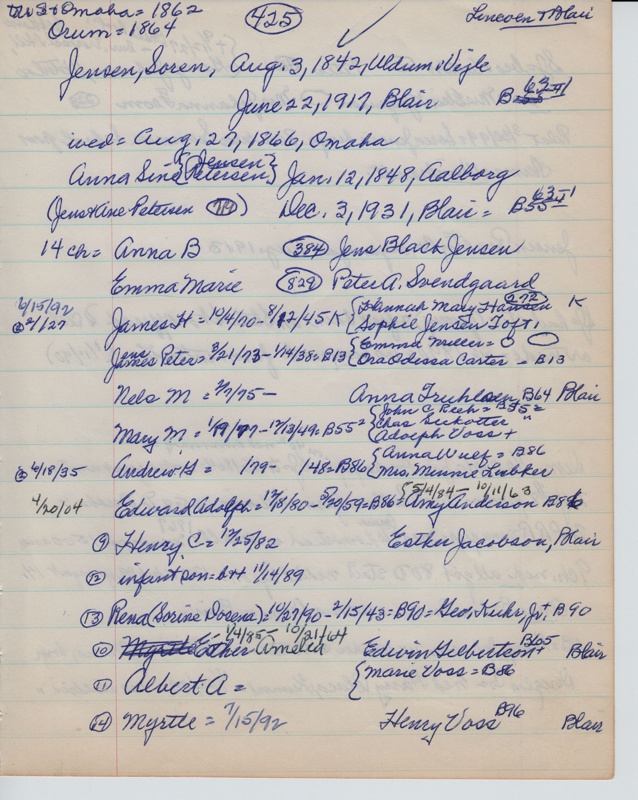 US & Omaha = 1862
425
Lincoln & Blair
Orum = 1864
Jensen, Soren, Aug. 3, 1842, Uldum, Vejle
June 22, 1917, Blair B 63-II
wed = Aug. 27, 1866, Omaha
Anna Sine {Jensen} {Petersen} Jan. 12, 1848, Aalborg
(Jens & Ane Petersen) Dec. 3, 1931, Blair = B 63-I
14 ch = Anna B 384 Jens Black Jensen
Emma Marie 829 Peter A. Svendgaard
6/15/92
James H = 10/4/70 - 8/12/45 K { Hannah Mary Hansen 272 K
Sophie Jensen Toft,
Jens
James Peter = 3/21/73 - 1/14/38 = B13 { Emma Miller = O
Ora Odessa Carter = B13
Nels M = 3/7/75 - Anna Truhlsen, B64 Blair
Mary M = 1/9/77 - 12/13/49 = B55 = { John C. Rech = B35 =
Chas Sukotter "
Adolph Voss +
@ 6/18/35 Andrew H = 179 - 148 = B86 { Anna Wulf = B86
Mrs. Minnie Liebker
4/20/04 Edward Adolph = 12/18/80 - 5/20/59 = B86 = { 5/4/84 - 10/11/63
Amy Anderson B86
9 Henry C = 12/25/82 Esther Jacobson, Blair
12 infant son = b & d 11/14/89
13 Rena (Sorine Dosena) = 10/27/90 - 2/15/43 = B90 = Geo, Kuhr, Jr. B90
1/4/85 - 10/21/64
10 Esther Amelia Edwin Gilbertson + B65 Blair
11 Albert A = { Marie Voss = B86
14 Myrtle = 7/15/92 Henry Voss B96 Blair